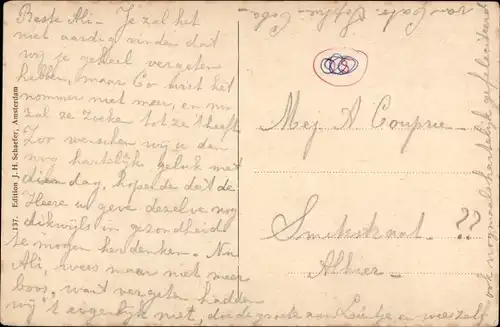 Beste Ali - Je zal het
niet aardig vinden dat
wij je geheel vergeten
hebben, maar Co wist het
nommer niet meer, en nu
zal ze zoeken tot ze 't heeft
Zoo wenschen wij u den
nog hartelijk geluk met
dien dag, hopende dat de
Heere u geve dezelve nog
dikwijls in gezondheid
te mogen herdenken. Nu
Ali, wees maar niet meer
boos, want vergeten hadden
wij 't eigenlijk niet, de groete aan
van Cato. Sophie - Coba -
ook nogmaals hartelijk gefeliciteerd
Mej A Couprie -
Smitstraat - ??
Alhier -
137. Edition J. H. Schaefer, Amsterdam